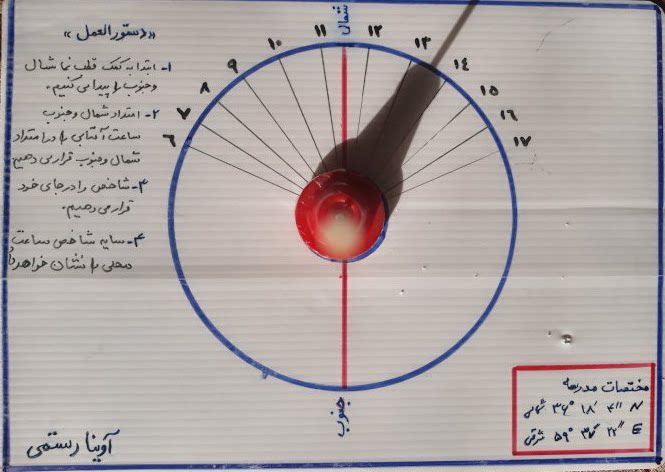 «دستورالعمل»
۱- ابتدا به کمک قطب نما شمال
و جنوب را پیدا می کنیم.
۲- امتداد شمال و جنوب
ساعت آفتابی را در امتداد
شمال و جنوب قرار می دهیم
۳- شاخص را در جای خود
قرار می دهیم.
۴- سایه شاخص ساعت
محلی را نشان خواهد داد
شمال
۶
۷
۸
۹
۱۰
۱۱
۱۲
۱۳
۱۴
۱۵
۱۶
۱۷
جنوب
آوینا رستمی
مختصات مدرسه
N ۳۶° ۱۸′ شمالی
E ۵۹° شرقی